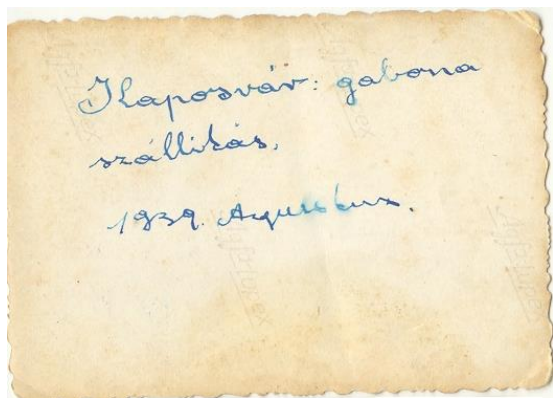 Kaposvár: gabona
szállitás.
1939. Agusztus.